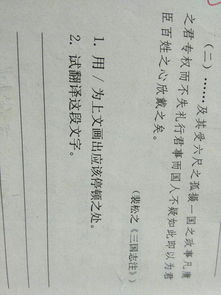 (二)……及其受六尺之孤摄一国之政事凡庸
之君专权而不失礼行君事而国人不疑如此即以为君
臣百姓之心欣戴之矣。
(裴松之《三国志注》)
1. 用 / 为上文画出应该停顿之处。
2. 试翻译这段文字。